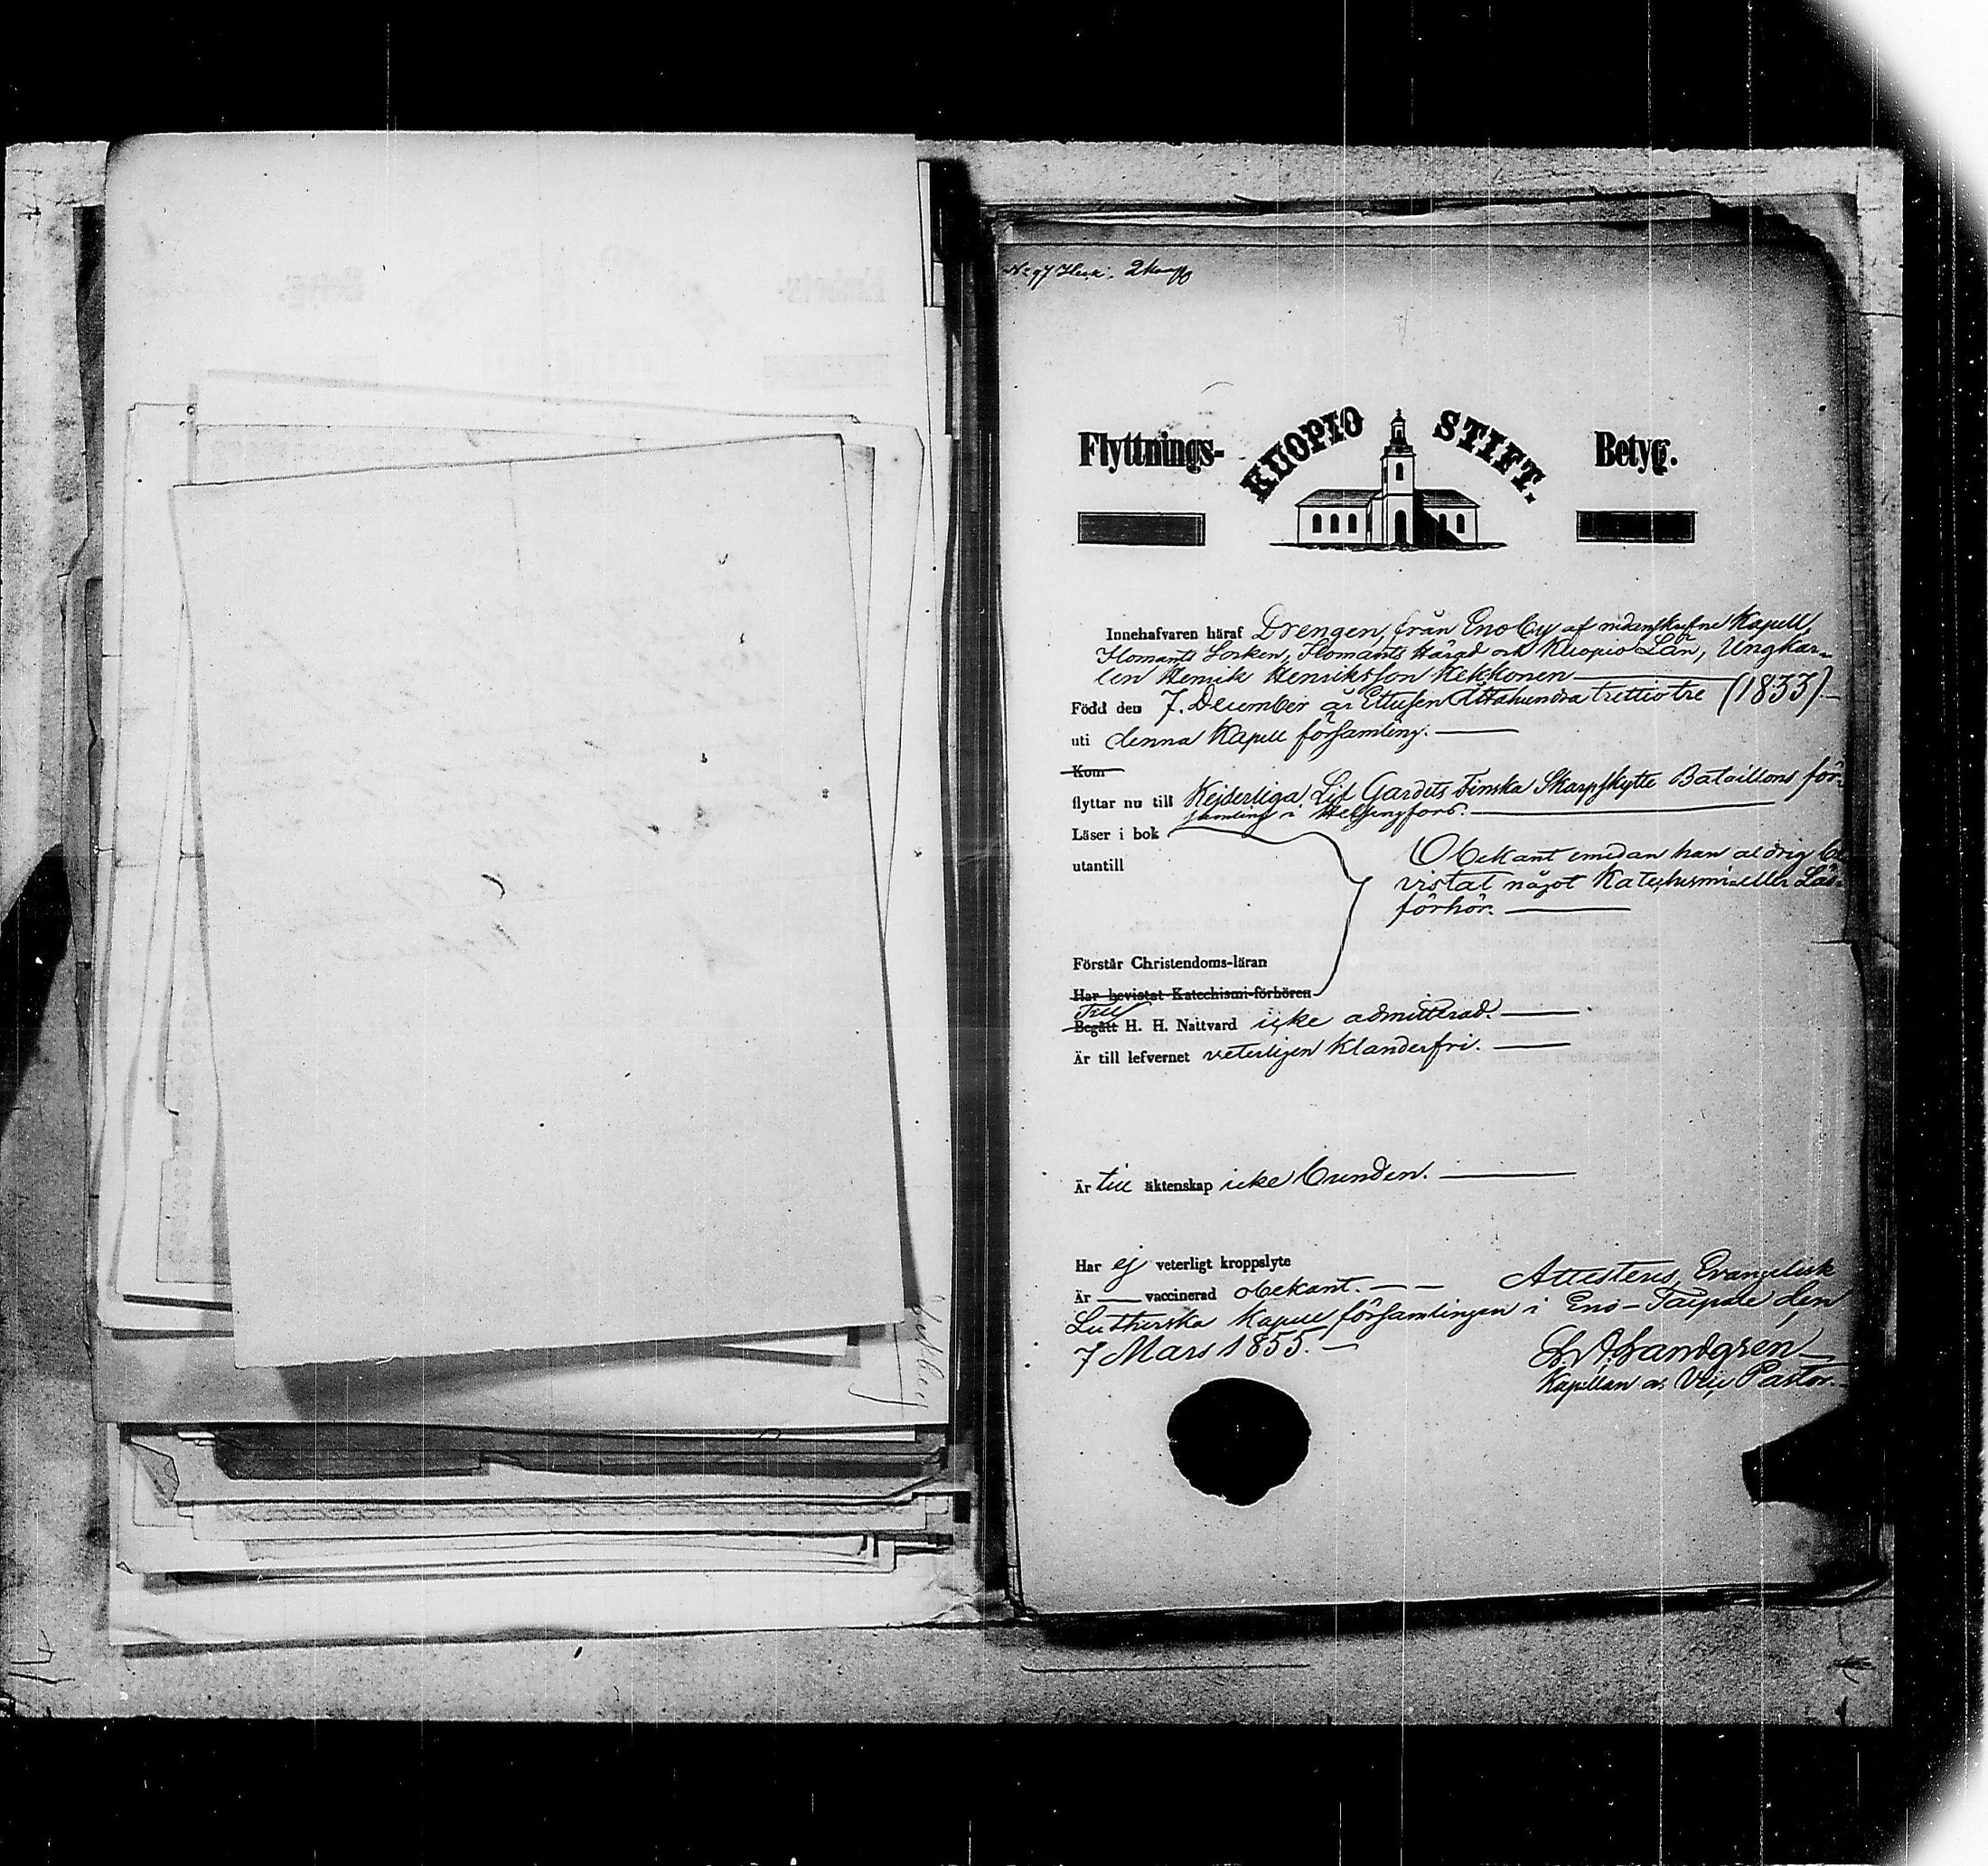 Flyttnings- KUOPIO STIFT. Betyg.
Innehafvaren häraf Drengen, från Eno by af nedanskrefne Kapell,
Ilomants Socken, Ilomants Härad och Kuopio Län, Ungkar-
len Henrik Henriksson Kekkonen
Född den 7. December år Ettusen Åttahundra trettiotre (1833).
uti denna Kapell församling.
Kom
flyttar nu till Kejserliga Lif Gardets Finska Skarpskytte Bataillons för-
samling i Helsingfors.
Läser i bok
utantill
Obekant emedan han aldrig be-
vistat något Katechismi eller Läs-
förhör.
Förstår Christendoms-läran
Har bevistat Katechismi-förhören
Till
Begått H. H. Nattvard icke admitterad.
Är till lefvernet veterligen klanderfri.
Är till äktenskap icke bunden.
Har ej veterligt kroppslyte
Är vaccinerad obekant. Attesteres, Evangelisk
Lutherska Kapell församlingen i Eno-Taipale den
7 Mars 1855.
Sandgren
Kapellan o. Vice Pastor.